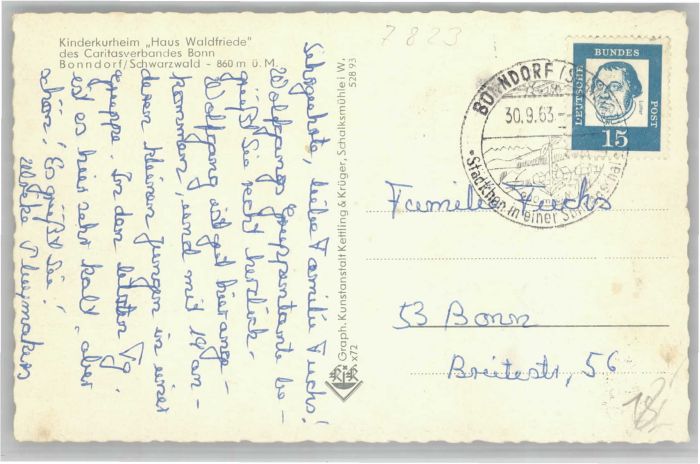 7823
Kinderkurheim „Haus Waldfriede"
des Caritasverbandes Bonn
Bonndorf/Schwarzwald - 860 m ü. M.
Sehrgeehrte, liebe Familie Fuchs!
Wolfgangs Gruppentante be-
grüßt Sie recht herzlich.
Wolfgang ist gut hier ange-
kommen, und mit 14 an-
deren kleinen Jungen in einer
Gruppe. In den letzten Tg.
ist es hier sehr kalt, aber
schön! Es grüßt Sie!
Graph. Kunstanstalt Kettling & Krüger, Schalksmühle i. W.
528 93
x72
K&K
BONNDORF
30.9.63.-
Städtchen in einer
DEUTSCHE
BUNDES
POST
15
Familie Fuchs
53 Bonn
Breitestr, 56